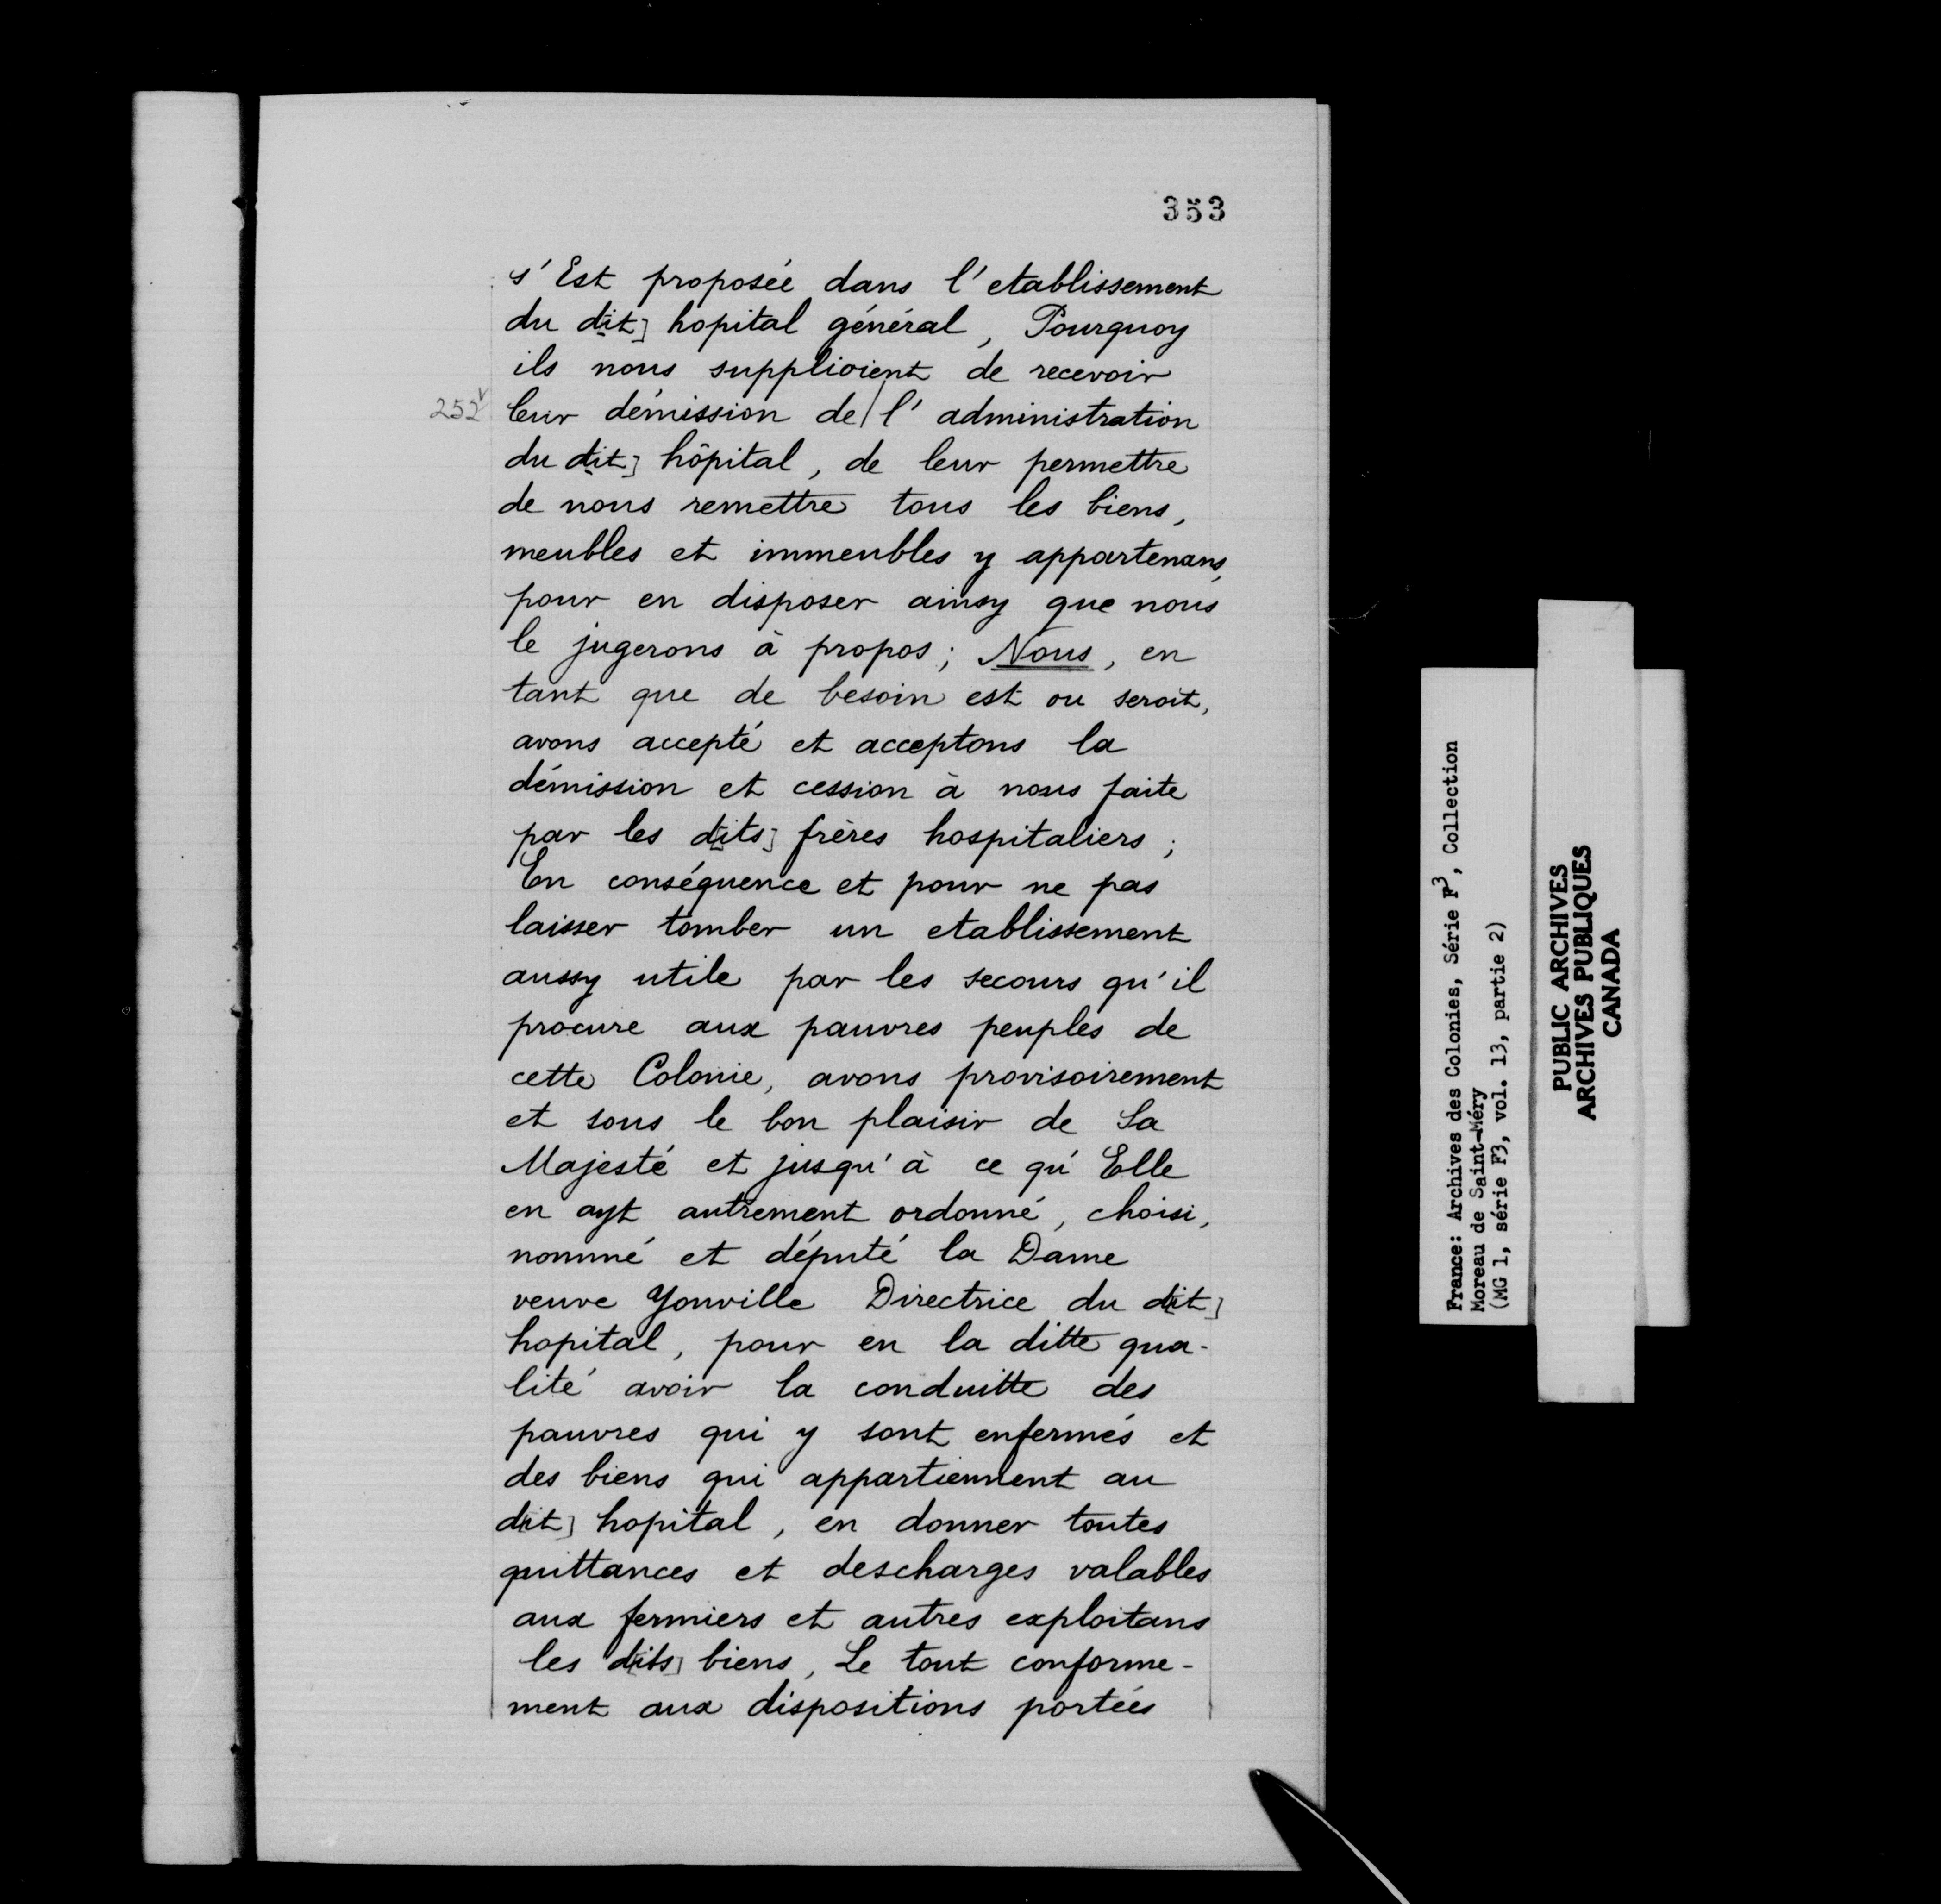 353
s'Est proposée dans l'etablissement
du d[it] hopital général, Pourquoy
ils nous supplioient de recevoir
252v leur démission de/l'administration
du d[it] hôpital, de leur permettre
de nous remettre tous les biens,
meubles et immeubles y appartenans,
pour en disposer ainsy que nous
le jugerons à propos; Nous, en
tant que de besoin est ou seroit,
avons accepté et acceptons la
démission et cession à nous faite
par les d[its] frères hospitaliers;
En conséquence et pour ne pas
laisser tomber un etablissement
aussy utile par les secours qu'il
procure aux pauvres peuples de
cette Colonie, avons provisoirement
et sous le bon plaisir de Sa
Majesté et jusqu'à ce qu'Elle
en ayt autrement ordonné, choisi,
nommé et député la Dame
veuve Youville Directrice du d[it]
hopital, pour en la ditte qua-
lité avoir la conduitte des
pauvres qui y sont enfermés et
des biens qui appartiennent au
d[it] hopital, en donner toutes
quittances et descharges valables
aux fermiers et autres exploitans
les d[its] biens, Le tout conforme-
ment aux dispositions portées
France: Archives des Colonies, Série F3, Collection
Moreau de Saint-Méry
(MG 1, série F3, vol. 13, partie 2)
PUBLIC ARCHIVES
ARCHIVES PUBLIQUES
CANADA